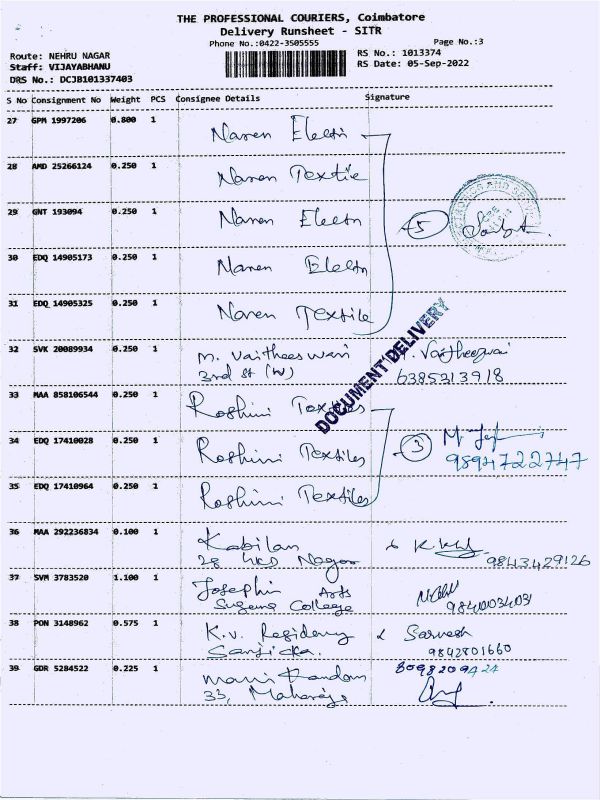 THE PROFESSIONAL COURIERS, Coimbatore
Delivery Runsheet - SITR
Phone No.:0422-3505555
Page No.:3
Route: NEHRU NAGAR
RS No.: 1013374
Staff: VIJAYABHANU
RS Date: 05-Sep-2022
DRS No.: DCJB101337403
S No Consignment No Weight PCS Consignee Details Signature
27 GPM 1997206 0.800 1 Naren Electn
28 AMD 25266124 0.250 1 Naren Textile
29 GNT 193094 0.250 1 Naren Electn 5
30 EDQ 14905173 0.250 1 Naren Electn
31 EDQ 14905325 0.250 1 Naren Textile
DOCUMENT DELIVERY
32 SVK 20089934 0.250 1 M. Vaitheeswari
3rd St (W) 6385313918
33 MAA 858106544 0.250 1 Roshini Textiles
34 EDQ 17410028 0.250 1 Roshini Textiles 3
9894722747
35 EDQ 17410964 0.250 1 Roshini Textiles
36 MAA 292236834 0.100 1 Kabilan
28 Nagar 9843429126
37 SVM 3783520 1.100 1 Josephin Arts
College 9840003403
38 PON 3148962 0.575 1 K.V. Regidency Sarvesh
9842801660
39 GDR 5284522 0.225 1 8098209424
33, Maharaja